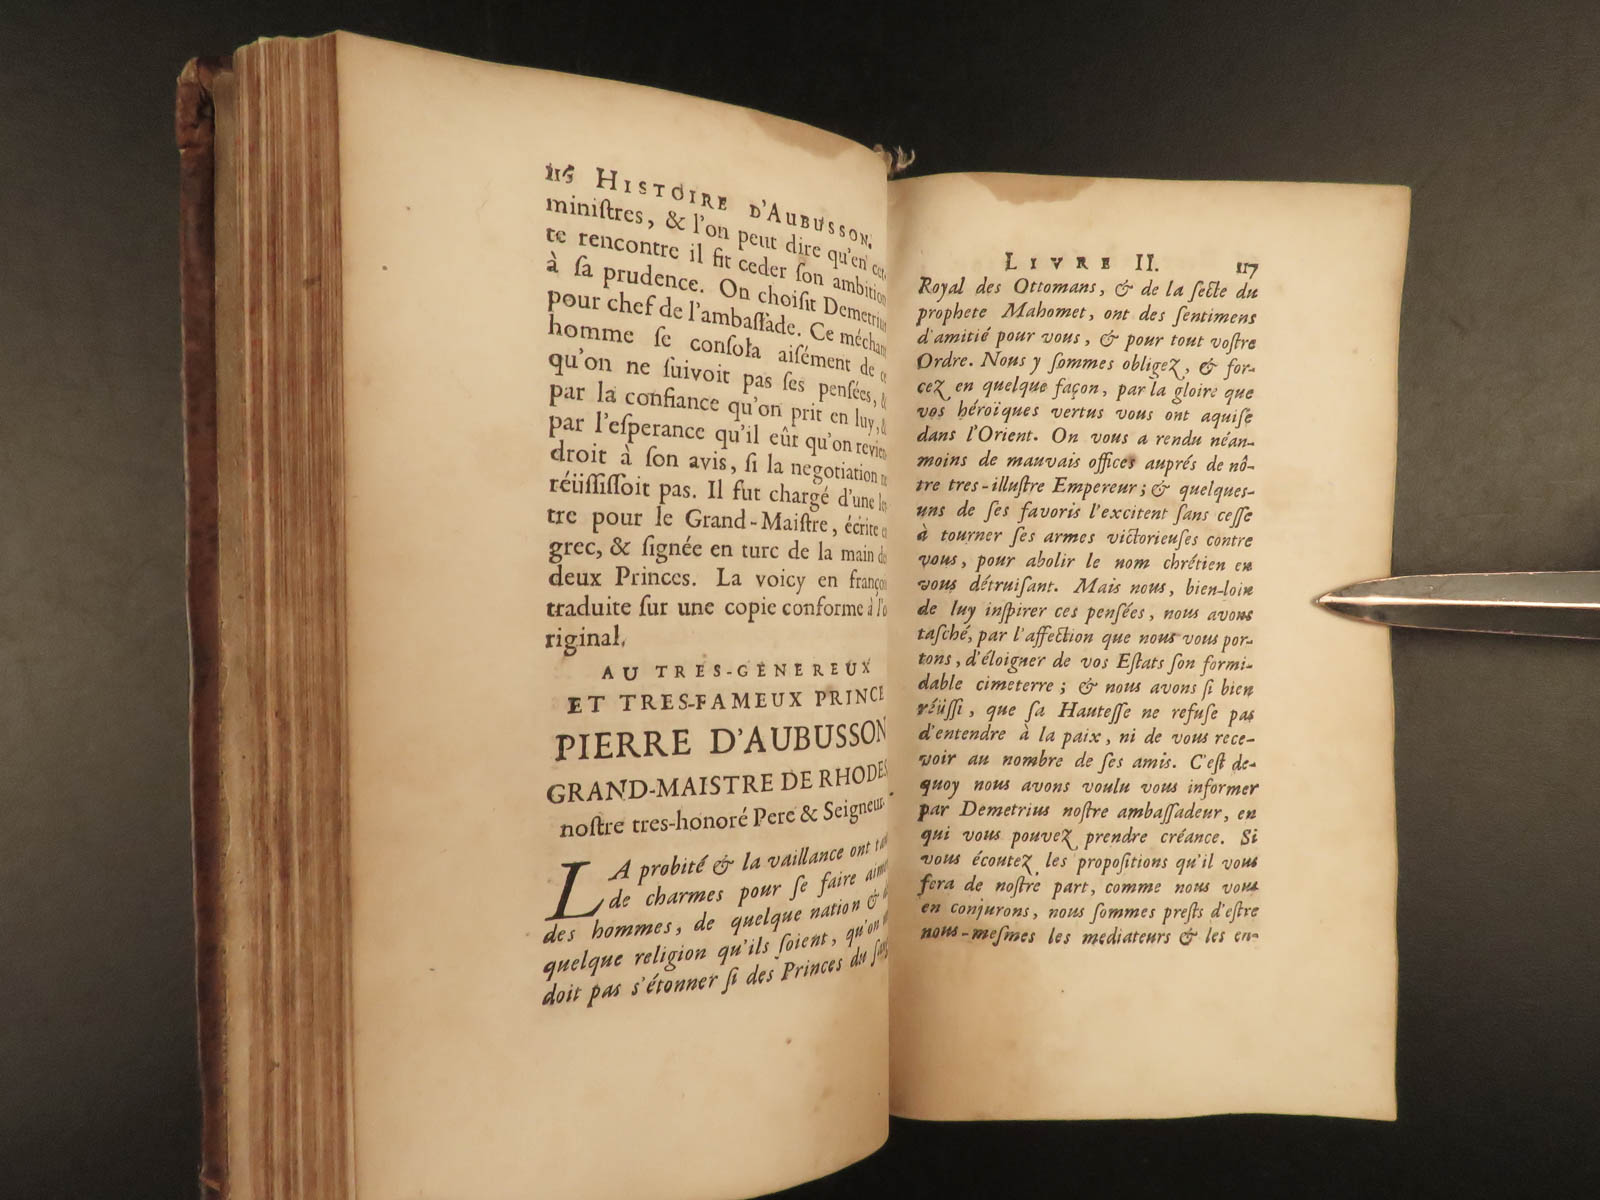 116 HISTOIRE D'AUBUSSON.
miniſtres, & l'on peut dire qu'en cet-
te rencontre il fit ceder ſon ambition
à ſa prudence. On choiſit Demetrius
pour chef de l'ambaſſade. Ce méchant
homme ſe conſola aiſément de ce
qu'on ne ſuivoit pas ſes penſées, &
par la confiance qu'on prit en luy, &
par l'eſperance qu'il eût qu'on revien
droit à ſon avis, ſi la negotiation ne
réüſſiſſoit pas. Il fut chargé d'une let
tre pour le Grand-Maiſtre, écrite en
grec, & ſignée en turc de la main des
deux Princes. La voicy en françois
traduite ſur une copie conforme à l'o
riginal.
AU TRES-GENEREUX
ET TRES-FAMEUX PRINCE
PIERRE D'AUBUSSON
GRAND-MAISTRE DE RHODES
noſtre tres-honoré Pere & Seigneur.
LA probité & la vaillance ont tant
de charmes pour ſe faire aimer
des hommes, de quelque nation & de
quelque religion qu'ils ſoient, qu'on ne
doit pas s'étonner ſi des Princes du ſang
LIVRE II. 117
Royal des Ottomans, & de la ſecte du
prophete Mahomet, ont des ſentimens
d'amitié pour vous, & pour tout voſtre
Ordre. Nous y ſommes obligez, & for-
cez en quelque façon, par la gloire que
vos héroïques vertus vous ont aquiſe
dans l'Orient. On vous a rendu néan-
moins de mauvais offices auprés de nô-
tre tres-illuſtre Empereur; & quelques-
uns de ſes favoris l'excitent ſans ceſſe
à tourner ſes armes victorieuſes contre
vous, pour abolir le nom chrétien en
vous détruiſant. Mais nous, bien-loin
de luy inſpirer ces penſées, nous avons
taſché, par l'affection que nous vous por-
tons, d'éloigner de vos Eſtats ſon formi-
dable cimeterre; & nous avons ſi bien
réüſſi, que ſa Hauteſſe ne refuſe pas
d'entendre à la paix, ni de vous rece-
voir au nombre de ſes amis. C'eſt de-
quoy nous avons voulu vous informer
par Demetrius noſtre ambaſſadeur, en
qui vous pouvez prendre créance. Si
vous écoutez les propoſitions qu'il vous
fera de noſtre part, comme nous vous
en conjurons, nous ſommes preſts d'eſtre
nous-meſmes les mediateurs & les en-